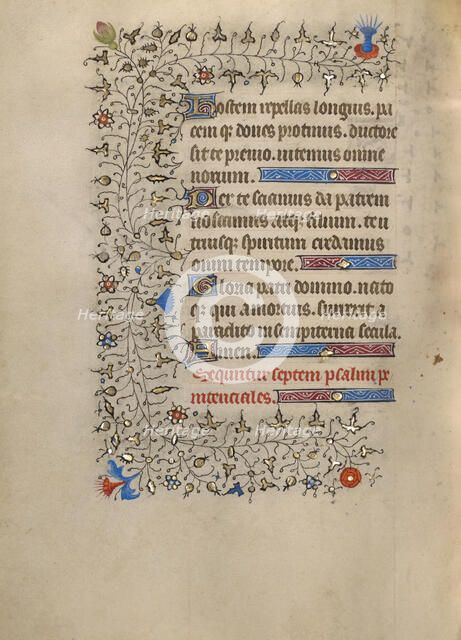 Hostem repellas longius. pa
cem q3 dones protinus. ductore
sic te previo. vitemus omne
noxium.
Per te sciamus da patrem
noscamus atq3 filium. te u
triusq3 spiritum credamus
omni tempore.
Gloria patri domino. nato
q3 qui a mortuis. surrexit a
paraclito in sempiterna secula.
Amen.
Sequntur septem psalmi pe
nitenciales.
Heritage
Heritage
Heritage
Heritage
Heritage
Heritage
Heritage
Heritage